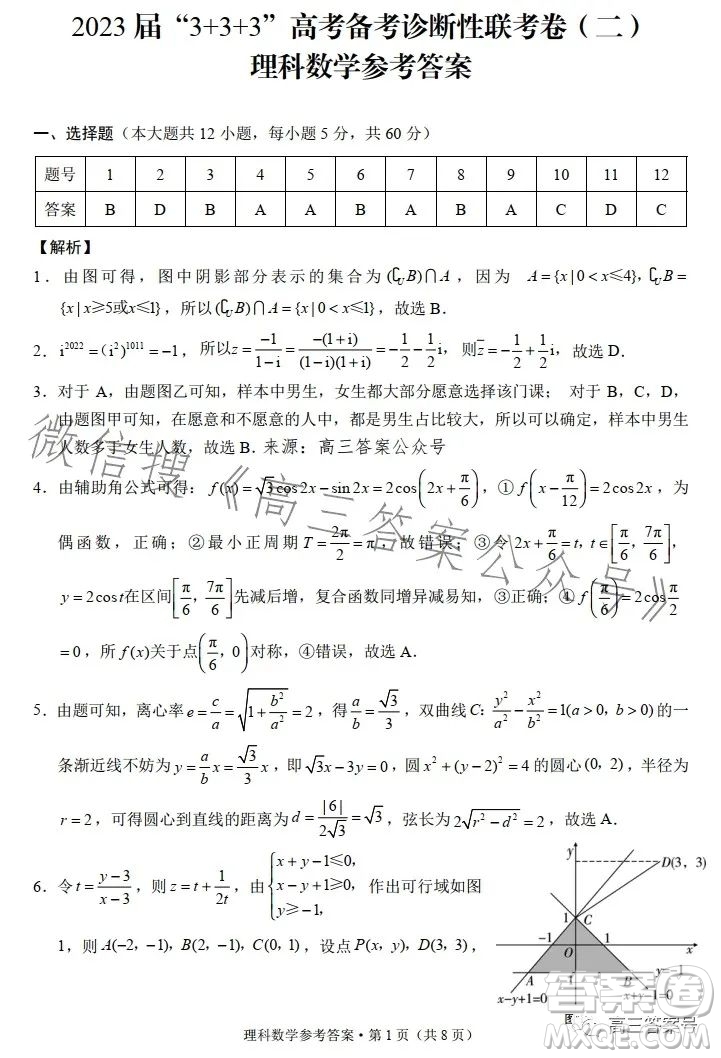 2023 届“3+3+3”高考备考诊断性联考卷（二）
理科数学参考答案
一、选择题（本大题共 12 小题，每小题 5 分，共 60 分）
题号 1 2 3 4 5 6 7 8 9 10 11 12
答案 B D B A A B A B A C D C
【解析】
1．由图可得，图中阴影部分表示的集合为(∁UB)∩A，因为 A={x|0<x≤4}，∁UB=
{x|x≥5或x≤1}，所以(∁UB)∩A={x|0<x≤1}，故选 B．
2．i^2022=(i^2)^1011=−1，所以z=−1/(1−i)=−(1+i)/((1−i)(1+i))=−1/2−1/2i，则z̄=−1/2+1/2i，故选 D．
3．对于 A，由题图乙可知，样本中男生，女生都大部分愿意选择该门课； 对于 B，C，D，
由题图甲可知，在愿意和不愿意的人中，都是男生占比较大，所以可以确定，样本中男生
人数多于女生人数，故选 B．来源：高三答案公众号
4．由辅助角公式可得：f(x)=√3cos2x−sin2x=2cos(2x+π/6)，①f(x−π/12)=2cos2x，为
偶函数，正确；②最小正周期T=2π/2=π，故错误；③令2x+π/6=t，t∈[π/6，7π/6]，
y=2cost在区间[π/6，7π/6]先减后增，复合函数同增异减易知，③正确；④f(π/6)=2cosπ/2
=0，所f(x)关于点(π/6，0)对称，④错误，故选 A．
5．由题可知，离心率e=c/a=√(1+b²/a²)=2，得a/b=√3/3，双曲线C：y²/a²−x²/b²=1(a>0，b>0)的一
条渐近线不妨为y=a/b x=√3/3 x，即√3x−3y=0，圆x²+(y−2)²=4的圆心(0，2)，半径为
r=2，可得圆心到直线的距离为d=|6|/(2√3)=√3，弦长为2√(r²−d²)=2，故选 A．
6．令t=(y−3)/(x−3)，则z=t+1/(2t)，由{x+y−1≤0，x−y+1≥0，y≥−1，作出可行域如图
1，则A(−2，−1)，B(2，−1)，C(0，1)，设点P(x，y)，D(3，3)，
y
D(3，3)
1
C
−1
O
1
x
A
B
y=−1
x−y+1=0
x+y−1=0
微信搜《高三答案公众号》
答案圈
MXQE.COM
高三答案号
理科数学参考答案·第 1 页（共 8 页）